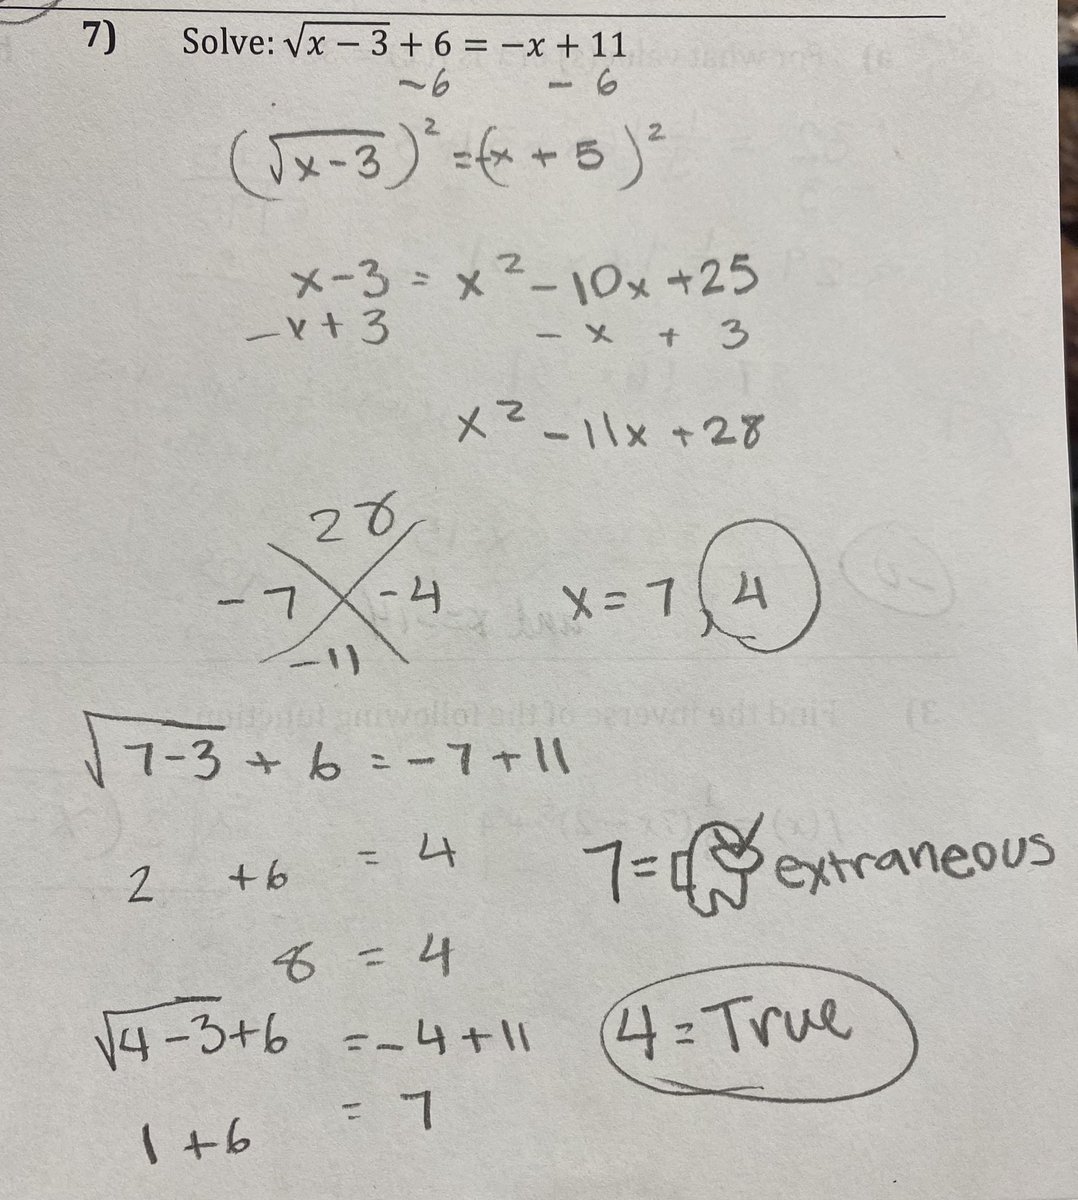 7) Solve: √x − 3 + 6 = −x + 11
−6 − 6
(√x-3)² = (-x + 5)²
x-3 = x² - 10x +25
-x + 3 - x + 3
x² - 11x + 28
28
-7 -4 x = 7, 4
-11
√7-3 + 6 = -7 + 11
2 +6 = 4 7= extraneous
8 = 4
√4-3+6 = -4+11 4 = True
1 +6 = 7